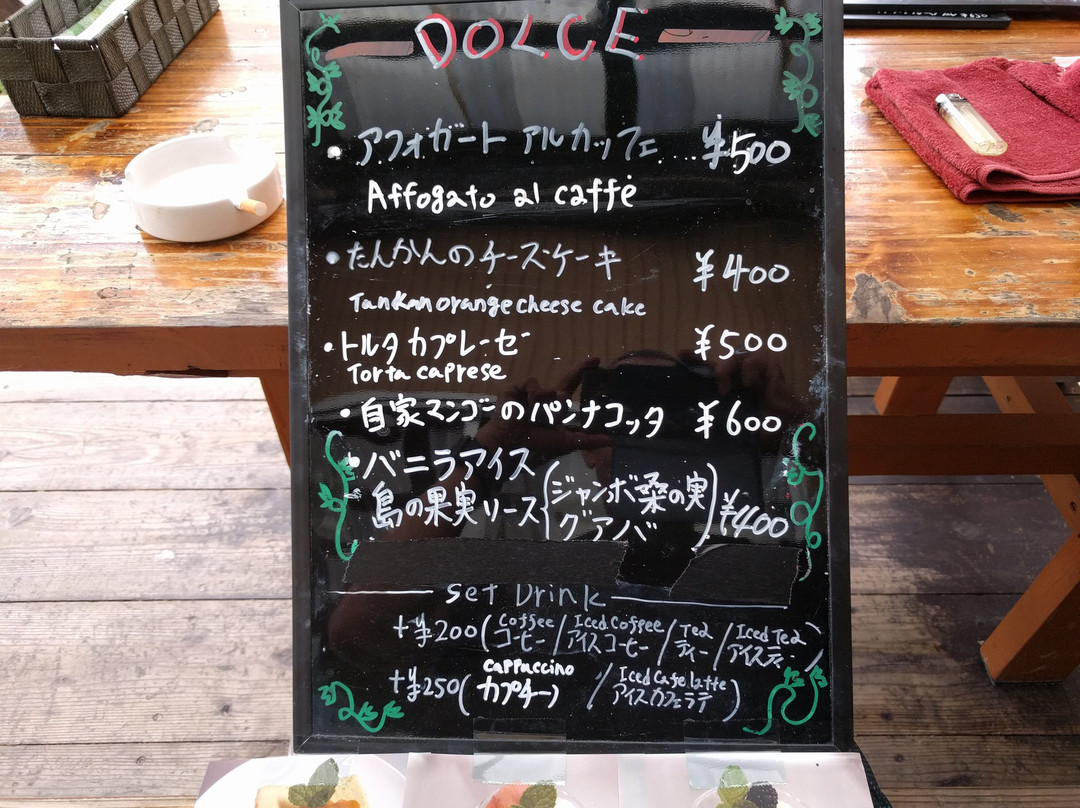 DOLCE
・アフォガート アルカッフェ .... ¥500
Affogato al caffe
・たんかんのチーズケーキ ¥400
Tankan orange cheese cake
・トルタカプレーゼ ¥500
Torta caprese
・自家マンゴーのパンナコッタ ¥600
・バニラアイス
島の果実リース(ジャンボ桑の実 グアバ) ¥400
Set Drink
+¥200 (Coffee コーヒー / Iced Coffee アイスコーヒー / Tea ティー / Iced Tea アイスティー)
+¥250 (Cappuccino カプチーノ / Iced Cafe latte アイスカフェラテ)